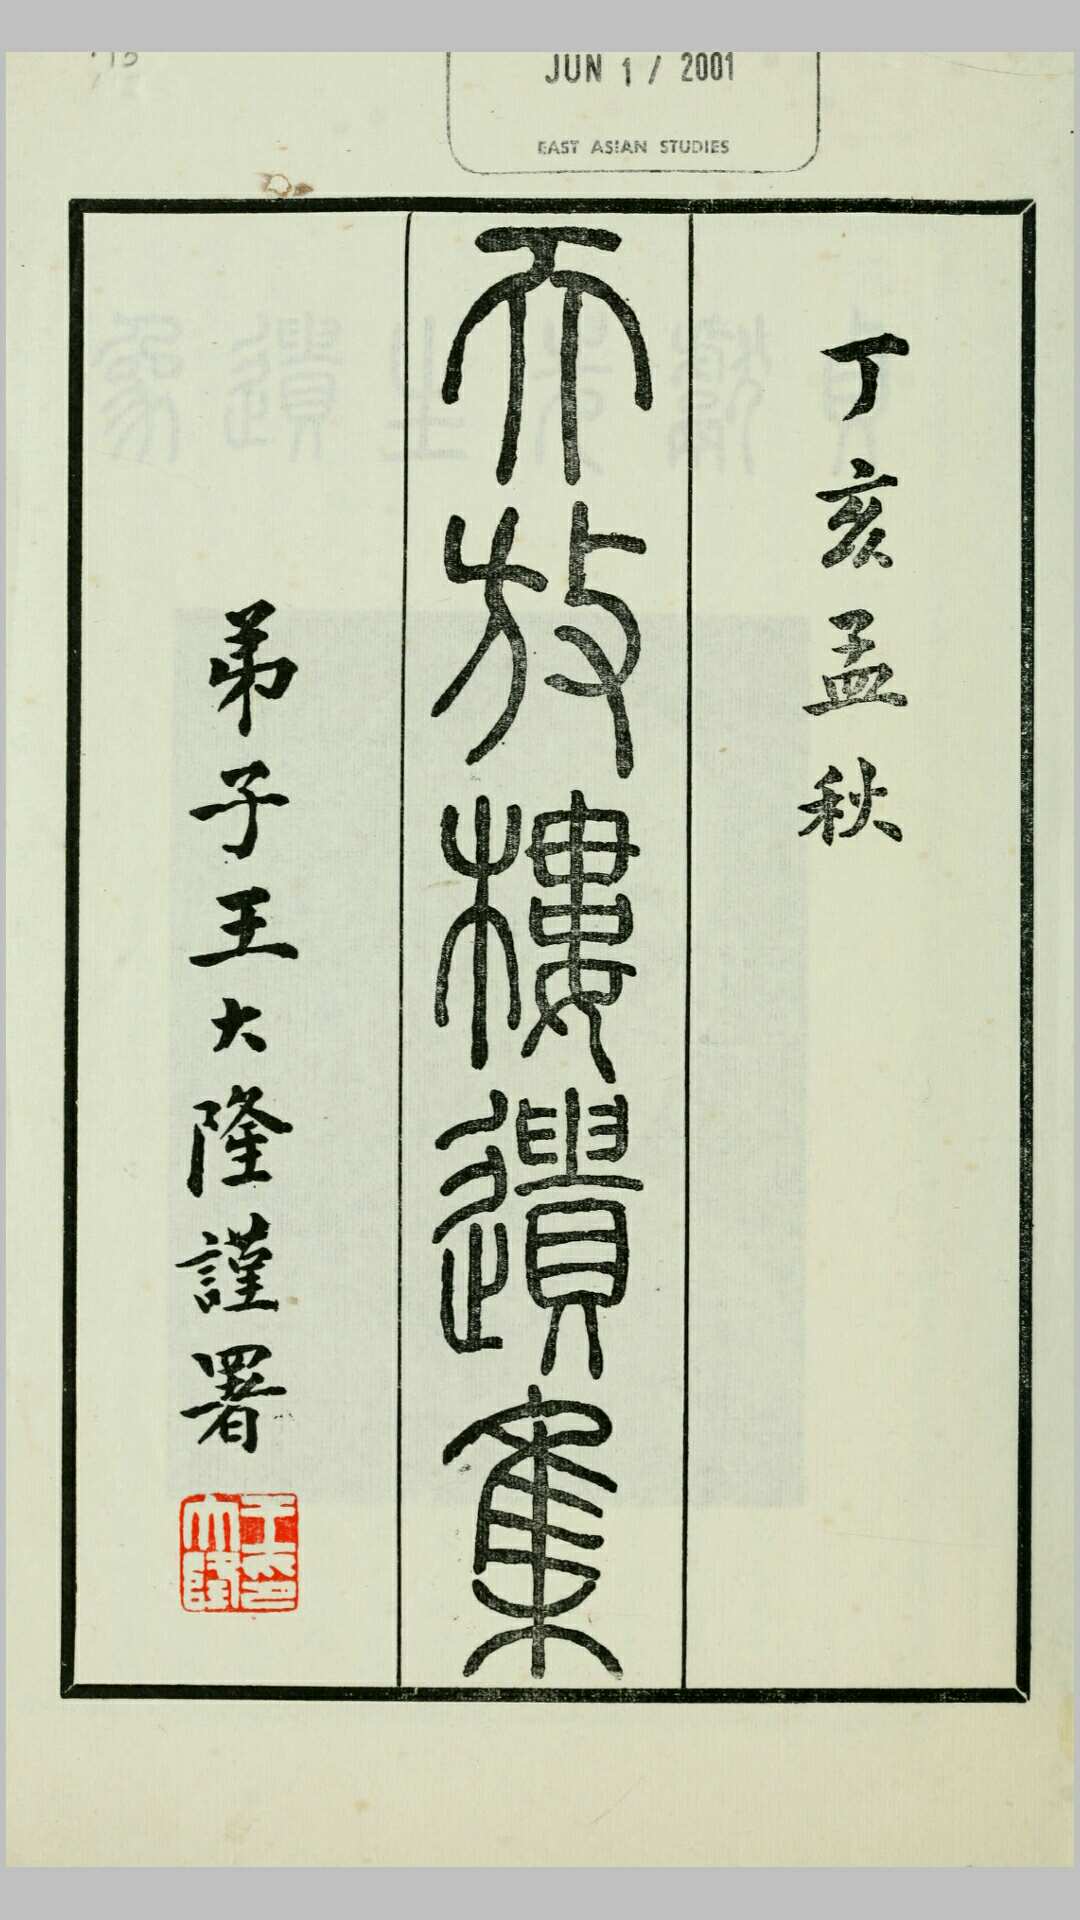 JUN 1 / 2001
EAST ASIAN STUDIES
丁亥孟秋
天放樓遺集
弟子王大隆謹署
王大隆印